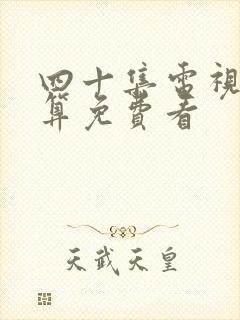 四十集電視
算免費看
天武天皇